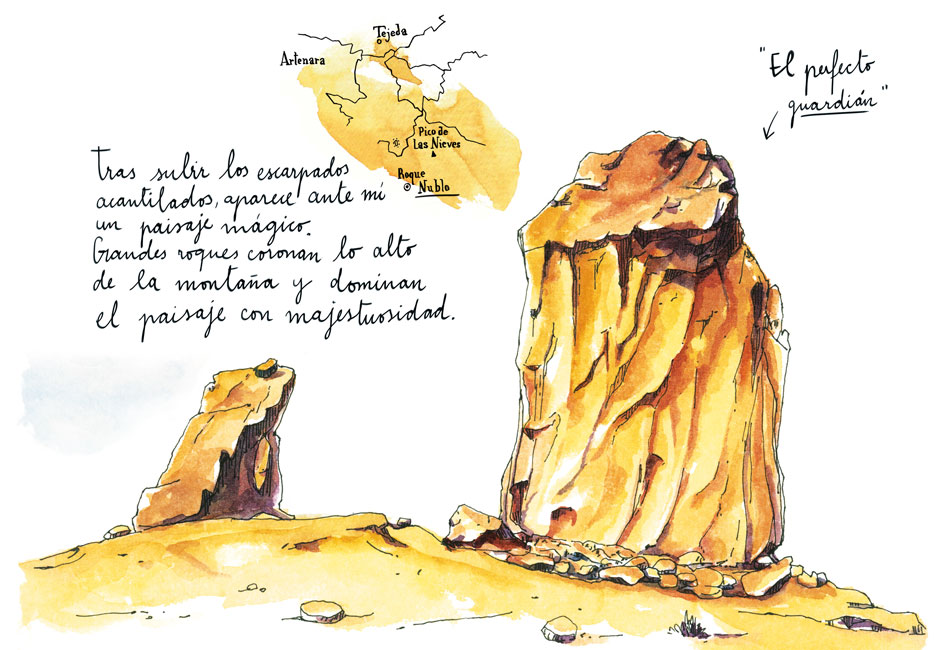 Tejeda
Artenara
Pico de
Las Nieves
Roque
Nublo
"El perfecto
guardián"
Tras subir los escarpados
acantilados, aparece ante mí
un paisaje mágico.
Grandes roques coronan lo alto
de la montaña y dominan
el paisaje con majestuosidad.